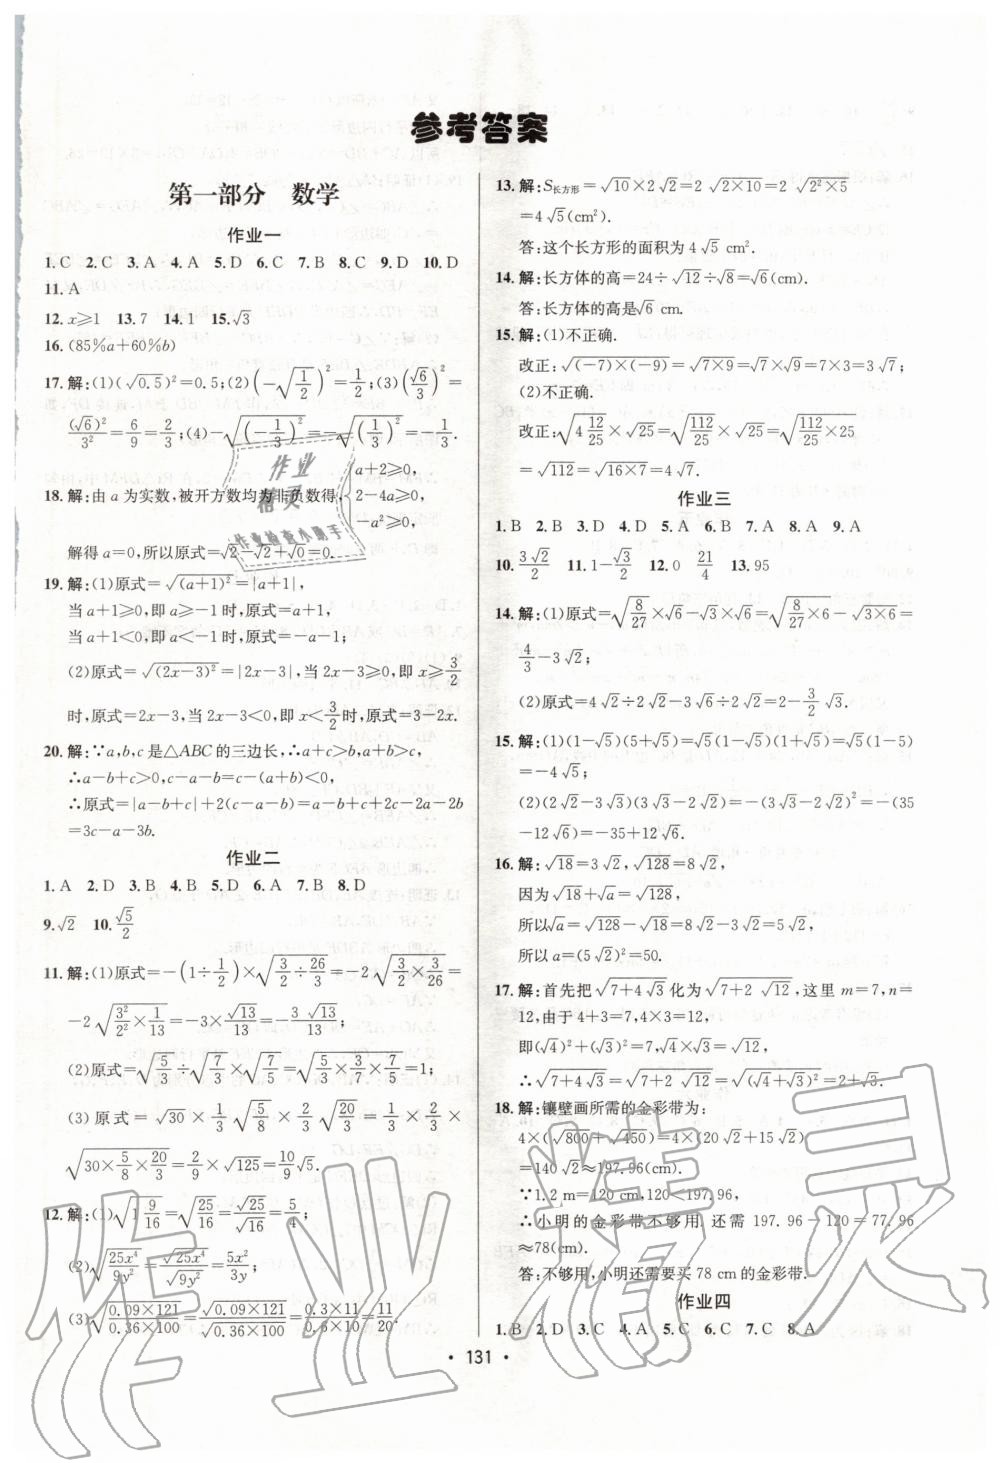 参考答案
第一部分 数学
作业一
1. C 2. C 3. A 4. A 5. D 6. C 7. B 8. C 9. D 10. D
11. A
12. x≥1 13. 7 14. 1 15. √3
16. (85%a+60%b)
17. 解:(1)(√0.5)²=0.5;(2)(-√(1/2))²=1/2;(3)(√6/3)²=
(√6)²/3²=6/9=2/3;(4)-√((-1/3)²)=-√((1/3)²)=-1/3.
18. 解:由 a 为实数,被开方数均为非负数得,{a+2≥0, 2-4a≥0, -a²≥0,
解得 a=0,所以原式=√2-√2+√0=0.
19. 解:(1)原式=√((a+1)²)=|a+1|,
当 a+1≥0,即 a≥-1 时,原式=a+1,
当 a+1<0,即 a<-1 时,原式=-a-1;
(2)原式=√((2x-3)²)=|2x-3|,当 2x-3≥0,即 x≥3/2
时,原式=2x-3,当 2x-3<0,即 x<3/2时,原式=3-2x.
20. 解:∵a,b,c 是△ABC 的三边长,∴a+c>b,a+b>c,
∴a-b+c>0,c-a-b=c-(a+b)<0,
∴原式=|a-b+c|+2(c-a-b)=a-b+c+2c-2a-2b
=3c-a-3b.
作业二
1. A 2. D 3. B 4. B 5. D 6. A 7. B 8. D
9. √2 10. √5/2
11. 解:(1)原式=-(1÷1/2)×√(3/2÷26/3)=-2√(3/2×3/26)=
-2√(3²/2²×1/13)=-3×√13/13=-3√13/13;
(2)原式=√(5/3÷7/3×7/5)=√(5/3×3/7×7/5)=1;
(3)原式=√30×1/3√(5/8)×2/3√(20/3)=1×1/3×2/3×
√(30×5/8×20/3)=2/9×√125=10/9√5.
12. 解:(1)√(1 9/16)=√(25/16)=√25/√16=5/4;
(2)√(25x⁴/9y²)=√25x⁴/√9y²=5x²/3y;
(3)√(0.09×121/0.36×100)=√0.09×121/√0.36×100=0.3×11/0.6×10=11/20.
13. 解:S长方形=√10×2√2=2√2×10=2√2²×5
=4√5(cm²).
答:这个长方形的面积为 4√5 cm².
14. 解:长方体的高=24÷√12÷√8=√6(cm).
答:长方体的高是√6 cm.
15. 解:(1)不正确.
改正:√((-7)×(-9))=√(7×9)=√7×√9=√7×3=3√7;
(2)不正确.
改正:√(4 12/25)×√25=√(112/25)×√25=√(112/25×25)
=√112=√(16×7)=4√7.
作业三
1. B 2. B 3. D 4. D 5. A 6. B 7. A 8. A 9. A
10. 3√2/2 11. 1-√3/2 12. 0 21/4 13. 95
14. 解:(1)原式=√(8/27)×√6-√3×√6=√(8/27×6)-√(3×6)=
4/3-3√2;
(2)原式=4√2÷2√2-3√6÷2√2=2-3/2√3.
15. 解:(1)(1-√5)(5+√5)=√5(1-√5)(1+√5)=√5(1-5)
=-4√5;
(2)(2√2-3√3)(3√3-2√2)=-(3√3-2√2)²=-(35
-12√6)=-35+12√6.
16. 解:√18=3√2,√128=8√2,
因为√18+√a=√128,
所以√a=√128-√18=8√2-3√2=5√2,
所以 a=(5√2)²=50.
17. 解:首先把√(7+4√3)化为√(7+2√12),这里 m=7,n=
12,由于 4+3=7,4×3=12,
即(√4)²+(√3)²=7,√4×√3=√12,
∴√(7+4√3)=√(7+2√12)=√((√4+√3)²)=2+√3.
18. 解:镶壁画所需的金彩带为:
4×(√800+√450)=4×(20√2+15√2)
=140√2≈197.96(cm).
∵1.2 m=120 cm,120<197.96,
∴小明的金彩带不够用.还需 197.96-120=77.96
≈78(cm).
答:不够用,小明还需要买 78 cm 的金彩带.
作业四
1. B 2. D 3. C 4. C 5. C 6. C 7. C 8. A
· 131 ·
作业
精灵
作业检查小助手
作业精灵